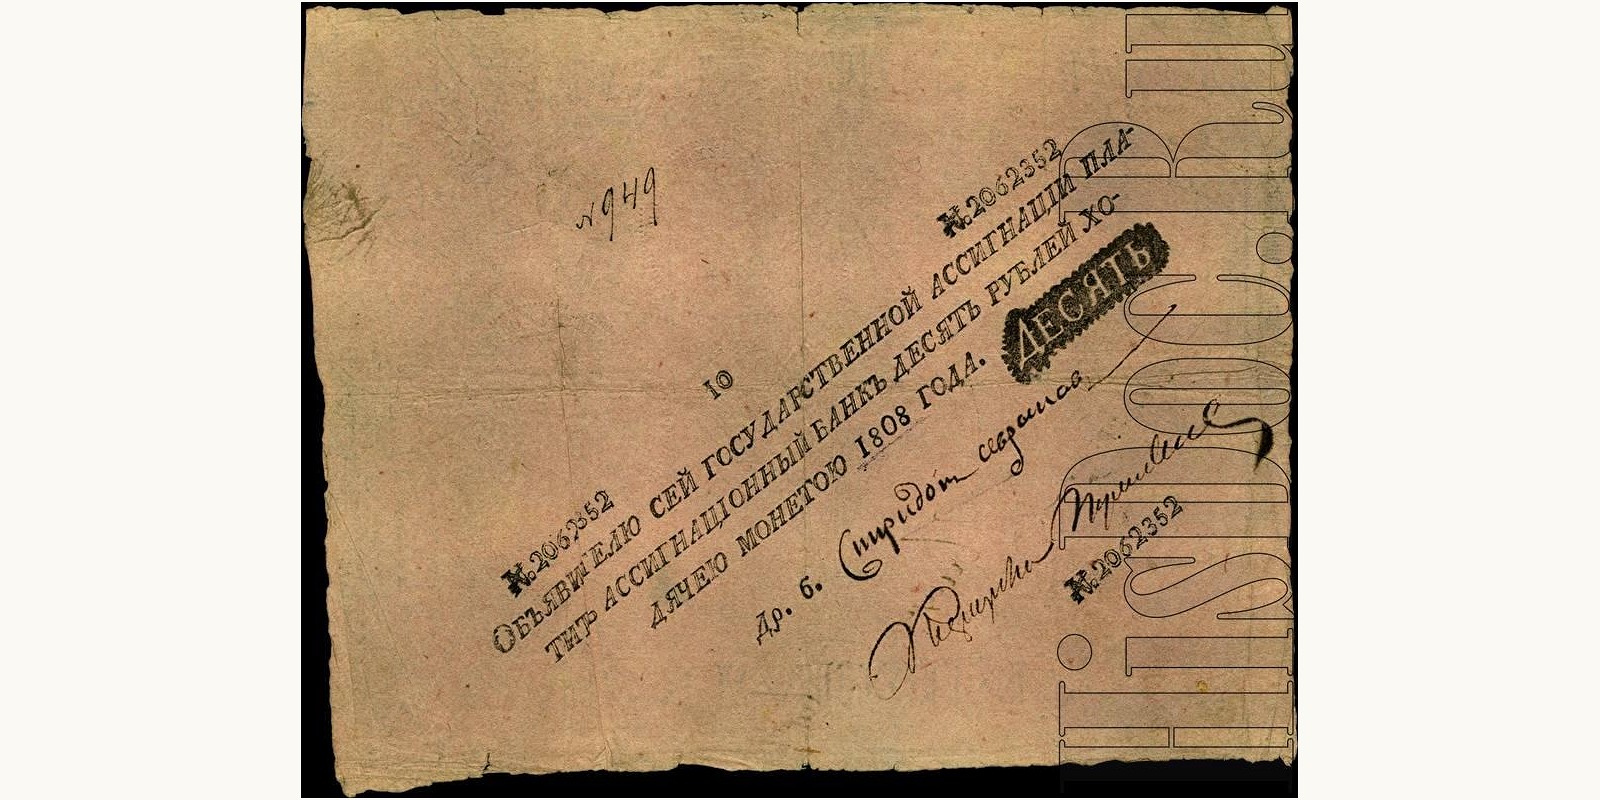 №949
№.2062352
№.2062352
10
ОБЪЯВИТЕЛЮ СЕЙ ГОСУДАРСТВЕННОЙ АССИГНАЦІИ ПЛА-
ТИТЪ АССИГНАЦІОННЫЙ БАНКЪ ДЕСЯТЬ РУБЛЕЙ ХО-
ДЯЧЕЮ МОНЕТОЮ 1808 ГОДА.
ДЕСЯТЬ
др. б. Спиридон
№.2062352
HiSDOC.RU